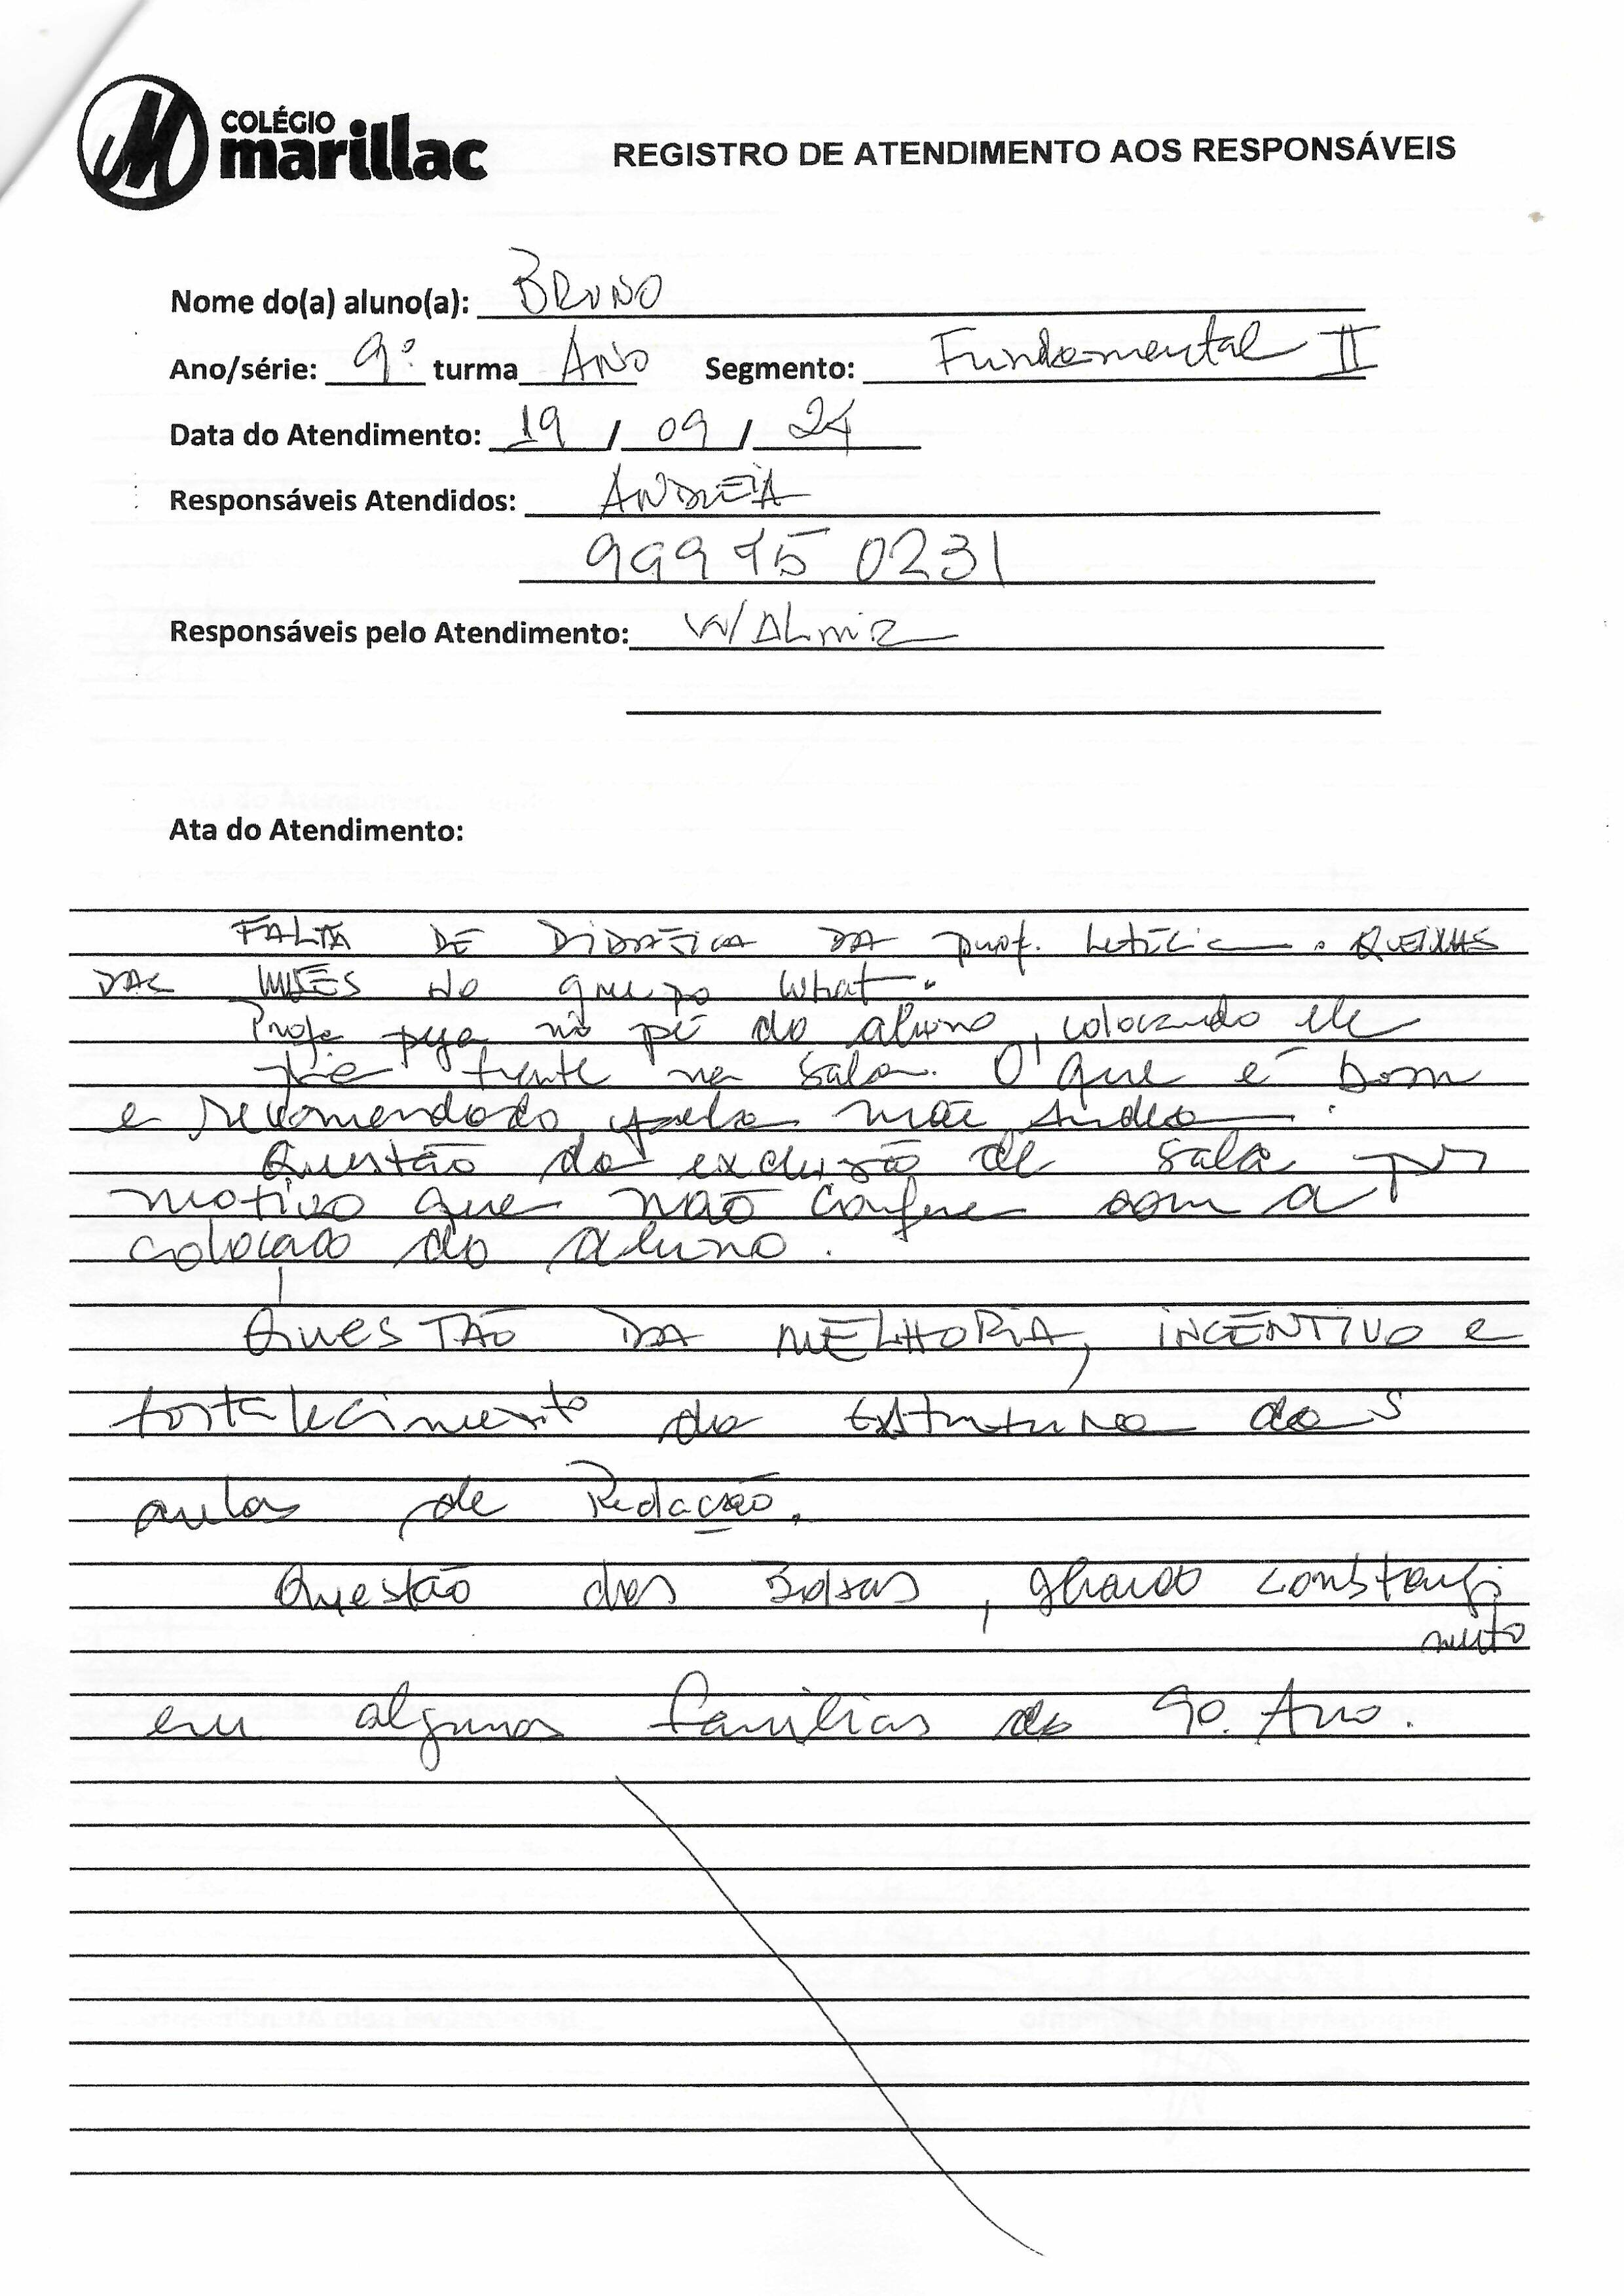 COLÉGIO
marillac
REGISTRO DE ATENDIMENTO AOS RESPONSÁVEIS
Nome do(a) aluno(a): BRUNO
Ano/série: 9º turma ANO Segmento: Fundamental II
Data do Atendimento: 19 / 09 / 24
Responsáveis Atendidos: ANDREIA
999 75 0231
Responsáveis pelo Atendimento: WALmiR
Ata do Atendimento:
FALTA DE DIDÁTICA DA prof. Letícia. QUEIXAS
DAS MÃES NO grupo what.
Profa pega no pé do aluno, colocando ele
frente na sala. O que é bom
e recomendado pela mãe
Questão da exclusão de sala por
motivo que não confere com a
colocação do aluno.
QUESTÃO DA MELHORIA, INCENTIVO e
fortalecimento da Estrutura das
aulas de Redação.
Questão das Bolsas, gerando constrangi
mento
em algumas famílias do 9o. Ano.